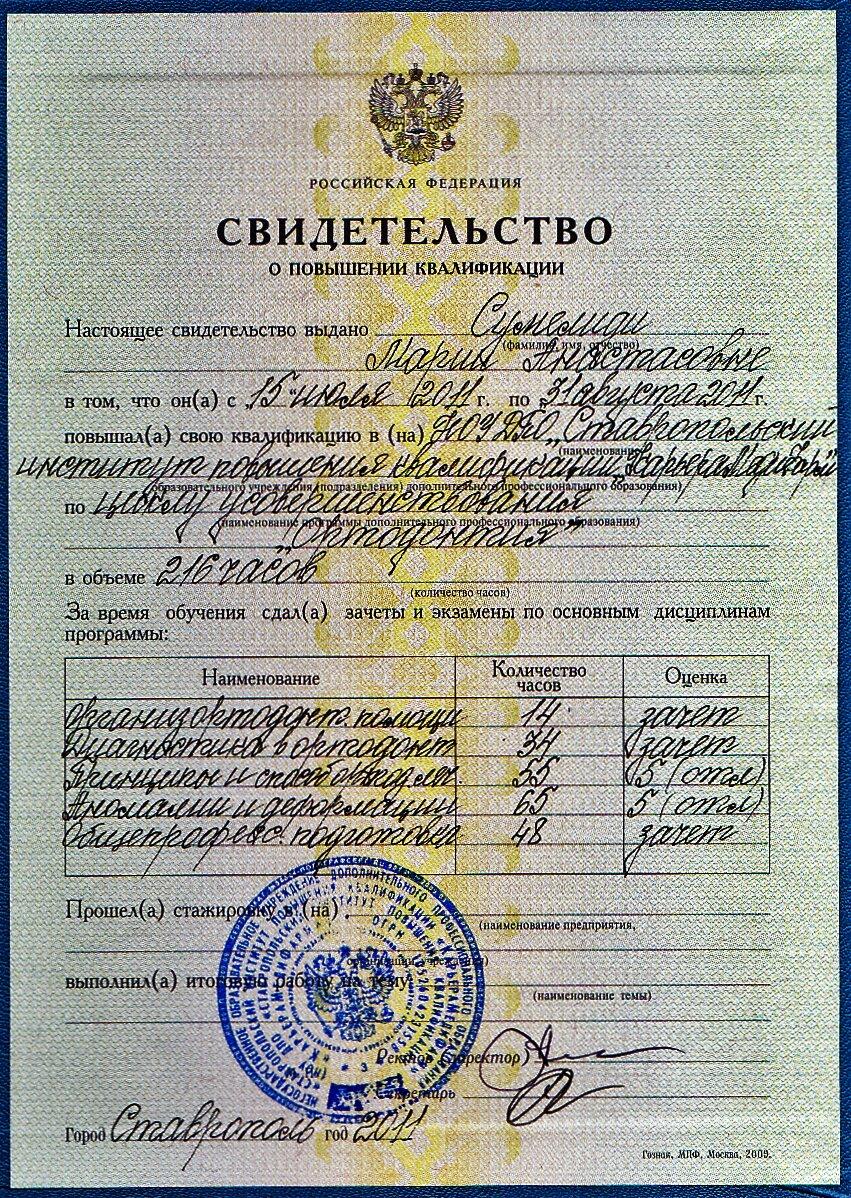 РОССИЙСКАЯ ФЕДЕРАЦИЯ
СВИДЕТЕЛЬСТВО
О ПОВЫШЕНИИ КВАЛИФИКАЦИИ
Настоящее свидетельство выдано
(фамилия, имя, отчество)
Марии Анастасовне
в том, что он(а) с „15" июля 2011 г. по „31" августа 2011 г.
повышал(а) свою квалификацию в (на) НОУ ДПО „Ставропольский
(наименование
институт повышения квалификации „КарьераМедифарм"
образовательного учреждения (подразделения) дополнительного профессионального образования)
по циклу усовершенствования
(наименование программы дополнительного профессионального образования)
„Ортодонтия"
в объеме 216 часов
(количество часов)
За время обучения сдал(а) зачеты и экзамены по основным дисциплинам
программы:
Наименование Количество часов Оценка
Организ. ортодонт. помощи 14 зачет
Диагностика в ортодонт 34 зачет
Принципы и способы 55 5 (отл)
Аномалии и деформации 65 5 (отл)
Общепрофес. подготовка 48 зачет
Прошел(а) стажировку в (на)
(наименование предприятия,
организации, учреждения)
выполнил(а) итоговую работу на тему
(наименование темы)
Ректор (директор)
Секретарь
Город Ставрополь год 2011
Гознак, МПФ, Москва, 2009.